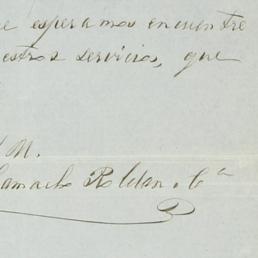 e esperamos encuentre
estros servicios, que
M.
Camacho Roldan & Cª